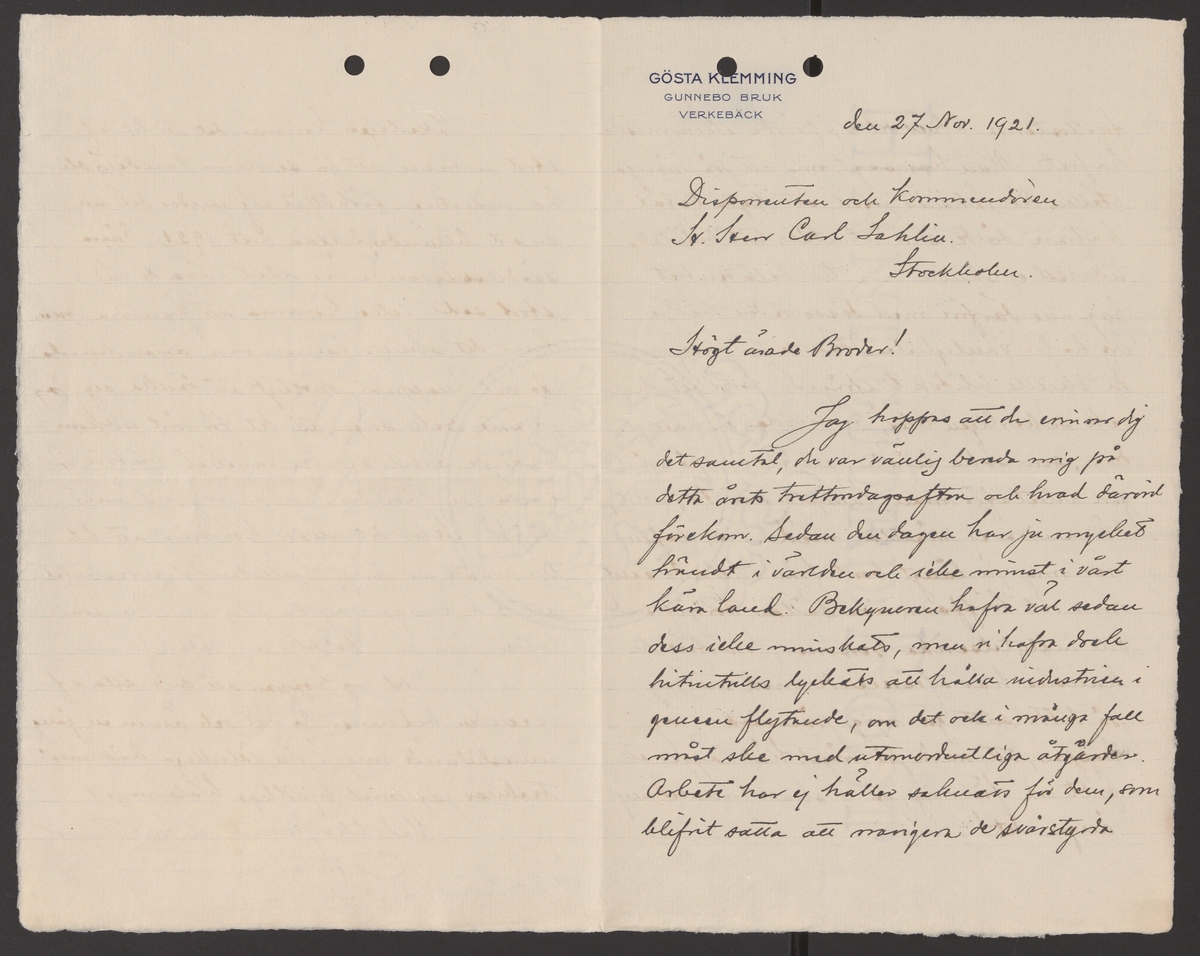 GÖSTA KLEMMING
GUNNEBO BRUK
VERKEBÄCK
den 27 Nov. 1921.
Disponenten och Kommendören
H. Herr Carl Sahlin.
Stockholm.
Högt ärade Broder!
Jag hoppas att du erinrar dig
det samtal, du var vänlig bereda mig på
detta årets trettondagsafton och hvad därvid
förekom. Sedan den dagen har ju mycket
händt i världen och icke minst i vårt
kära land. Bekymren hafva väl sedan
dess icke minskats, men vi hafva dock
hitintills lyckats att hålla industrien i
gensen flytande, om det ock i många fall
måst ske med utomordentliga åtgärder.
Arbete har ej häller saknats för dem, som
blifvit satta att navigera de svårstyrda